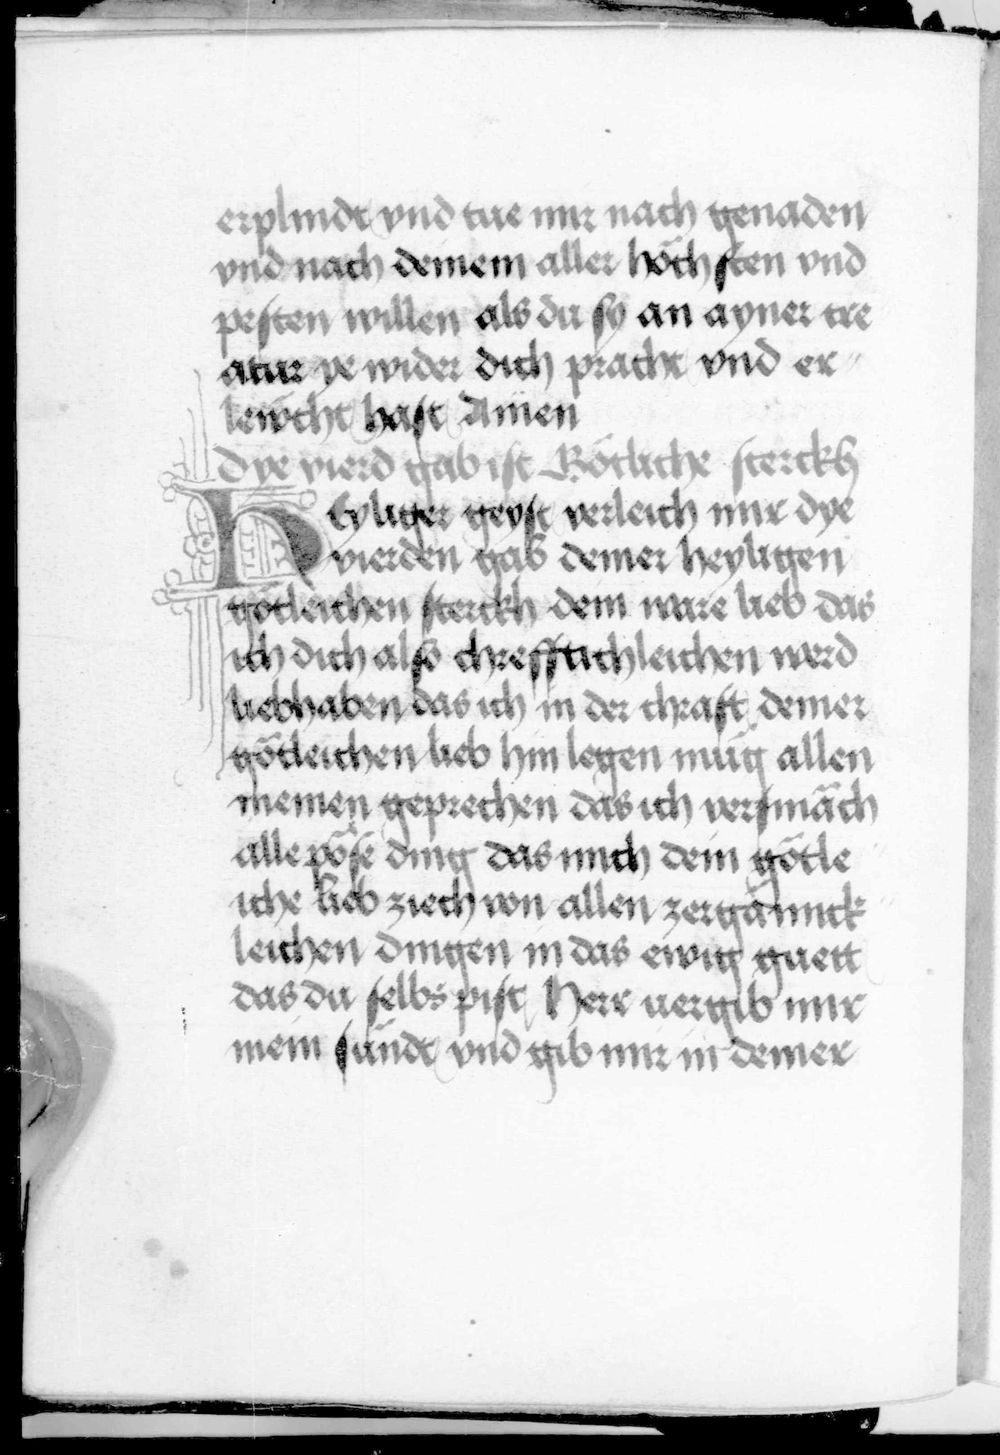 erplindt vnd tue mir nach genaden
vnd nach deinem aller höchsten vnd
pesten willen als du sy an ayner cre
atur ye wider dich pracht vnd er
lewcht hast Amen
Dye vierd gab ist Götliche sterckh
Heyliger geyst verleich mir dye
vierden gab deiner heyligen
götleichen sterckh dein ware lieb das
ich dich also chrefftichleichen werd
liebhaben das ich in der chraft deiner
götleichen lieb hin legen müg allen
meinen geprechen das ich versmäch
alle pöse ding das mich dein götle
iche lieb ziech von allen zergännck
leichen dingen in das ewig guett
das du selbs pist Herr vergib mir
mein sündt vnd gib mir in deiner